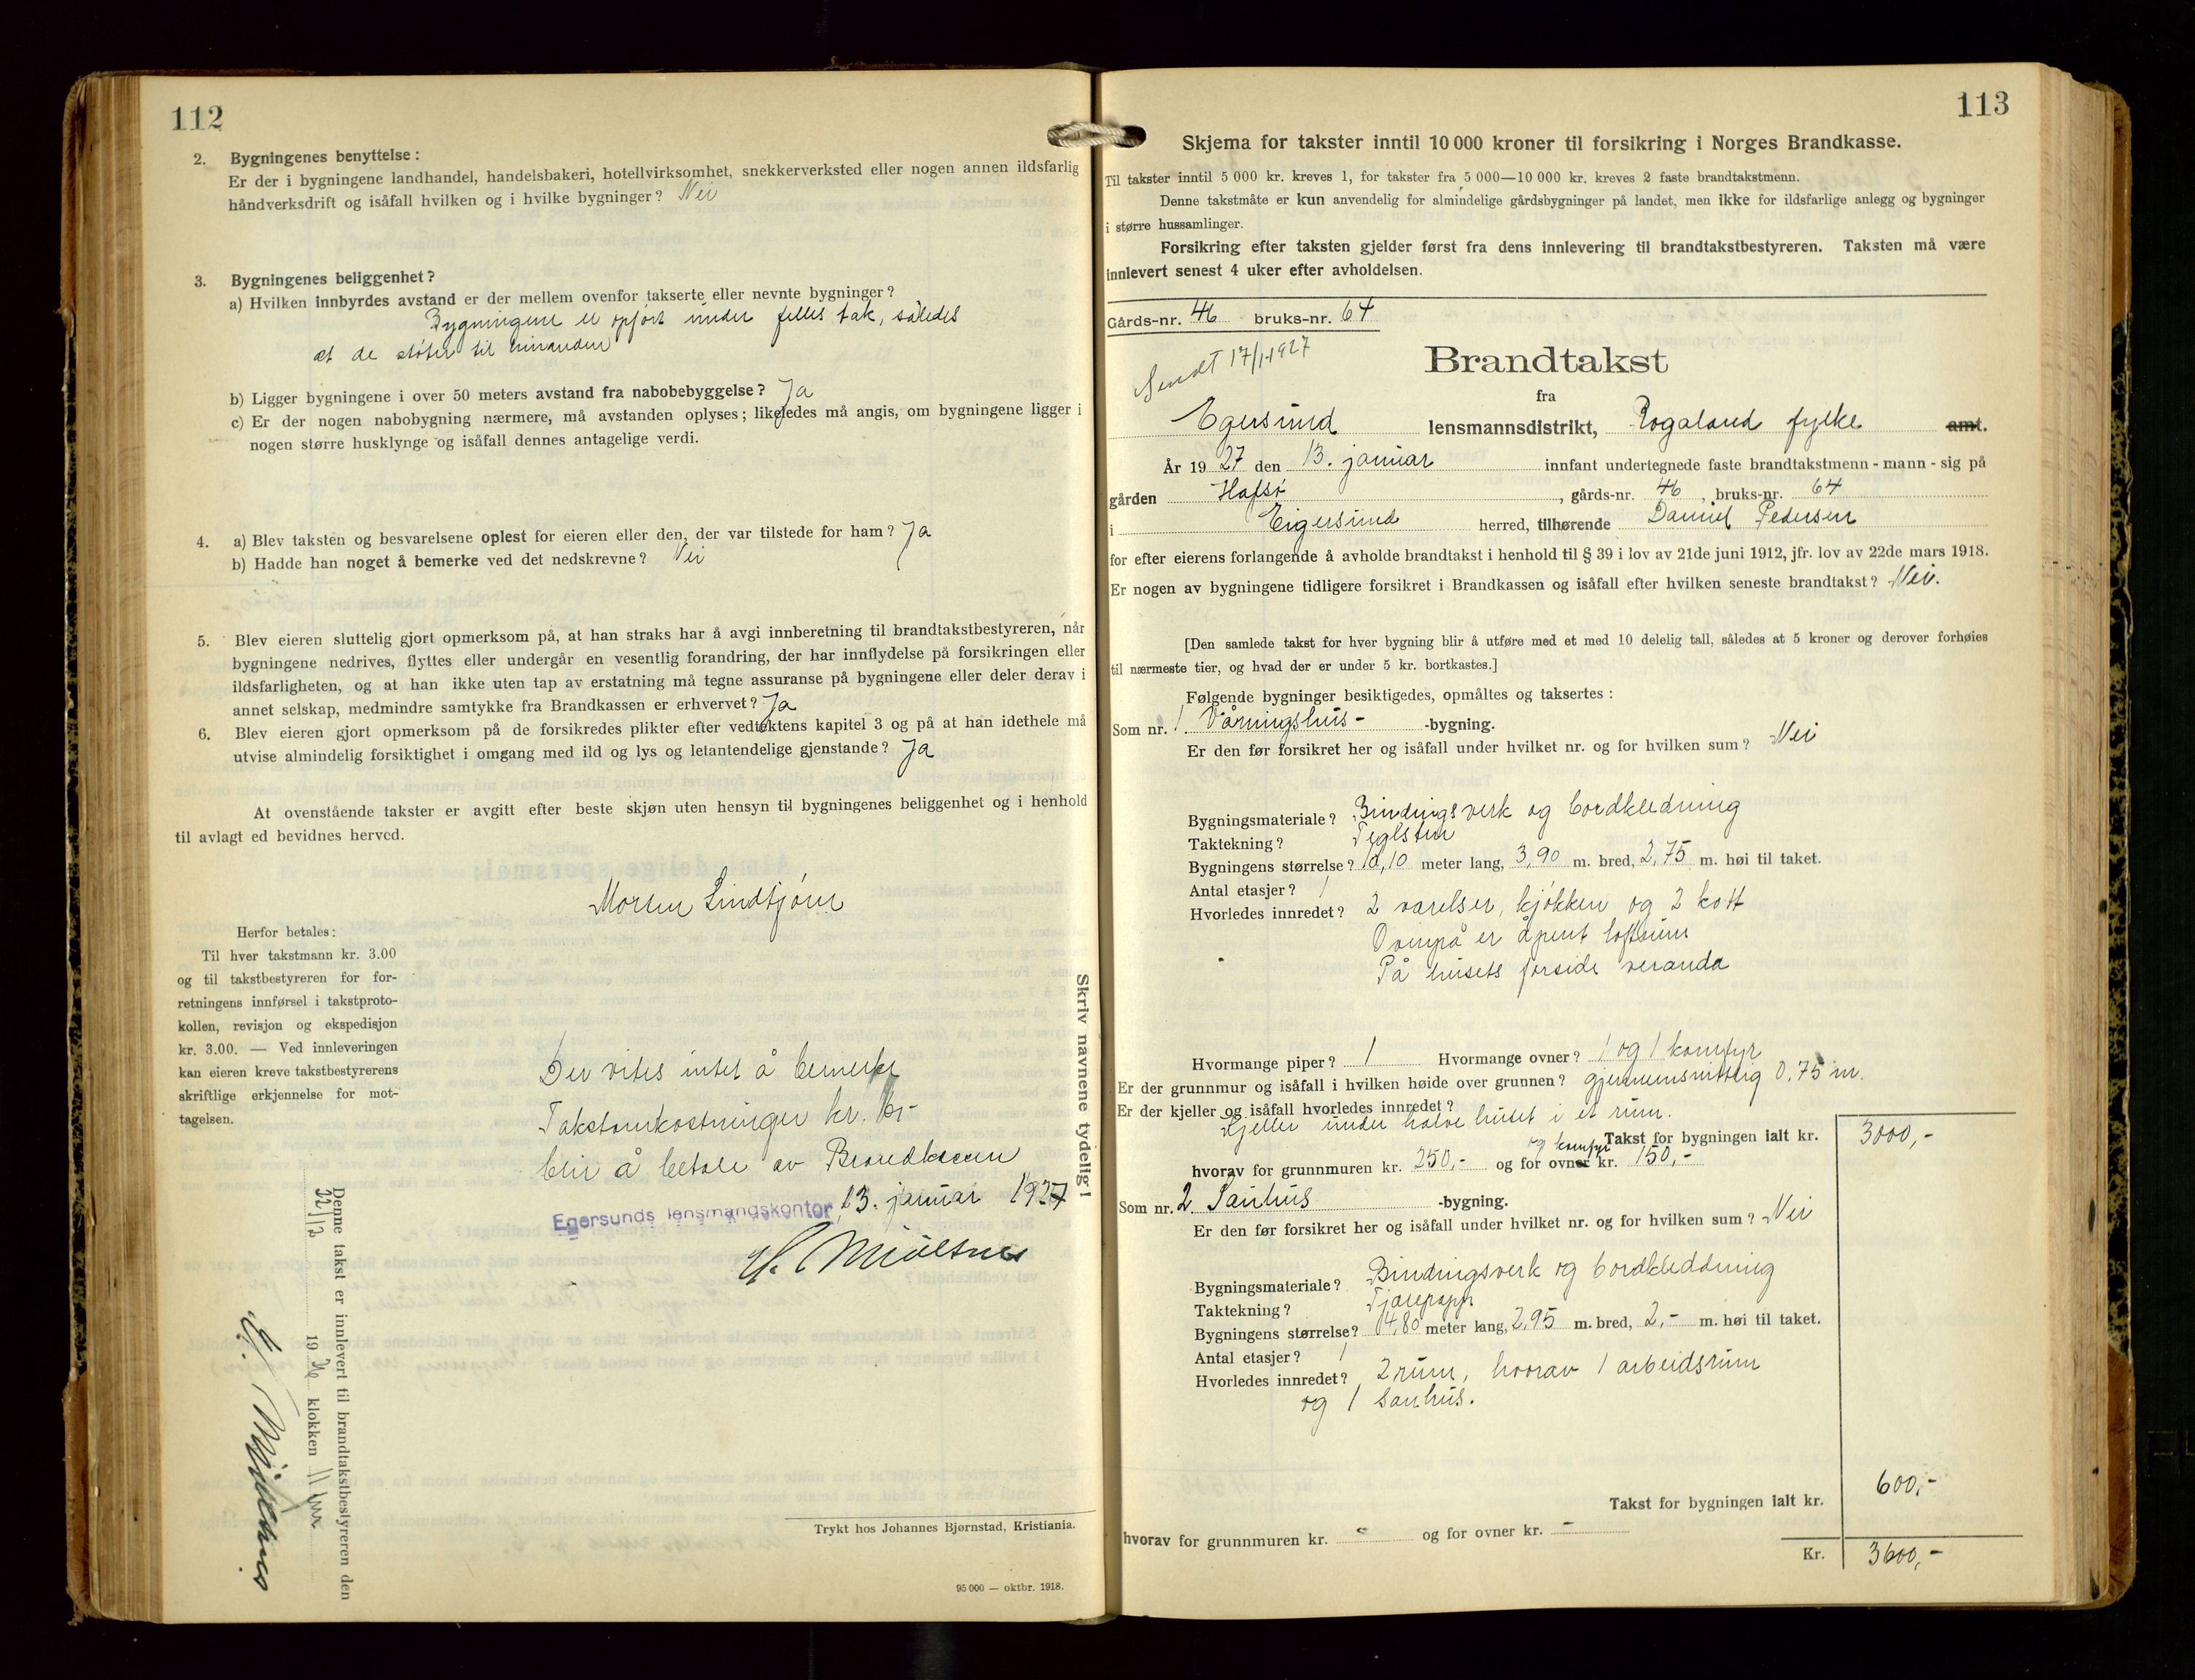 112
2. Bygningenes benyttelse:
Er der i bygningene landhandel, handelsbakeri, hotellvirksomhet, snekkerverksted eller nogen annen ildsfarlig
håndverksdrift og isåfall hvilken og i hvilke bygninger? Nei
3. Bygningenes beliggenhet?
a) Hvilken innbyrdes avstand er der mellem ovenfor takserte eller nevnte bygninger?
Bygningene er opført under felles tak, således
at de støter til hinanden
b) Ligger bygningene i over 50 meters avstand fra nabobebyggelse? Ja
c) Er der nogen nabobygning nærmere, må avstanden oplyses; likeledes må angis, om bygningene ligger i
nogen større husklynge og isåfall dennes antagelige verdi.
4. a) Blev taksten og besvarelsene oplest for eieren eller den, der var tilstede for ham? Ja
b) Hadde han noget å bemerke ved det nedskrevne? Nei
5. Blev eieren sluttelig gjort opmerksom på, at han straks har å avgi innberetning til brandtakstbestyreren, når
bygningene nedrives, flyttes eller undergår en vesentlig forandring, der har innflydelse på forsikringen eller
ildsfarligheten, og at han ikke uten tap av erstatning må tegne assuranse på bygningene eller deler derav i
annet selskap, medmindre samtykke fra Brandkassen er erhvervet? Ja
6. Blev eieren gjort opmerksom på de forsikredes plikter efter vedtektens kapitel 3 og på at han idethele må
utvise almindelig forsiktighet i omgang med ild og lys og letantendelige gjenstande? Ja
At ovenstående takster er avgitt efter beste skjøn uten hensyn til bygningenes beliggenhet og i henhold
til avlagt ed bevidnes herved.
Morten Lindtjørn
Herfor betales:
Til hver takstmann kr. 3.00
og til takstbestyreren for for-
retningens innførsel i takstproto-
kollen, revisjon og ekspedisjon
kr. 3.00. — Ved innleveringen
kan eieren kreve takstbestyrerens
skriftlige erkjennelse for mot-
tagelsen.
Der vites intet å bemerke
Takstomkostninger kr.
blir å betale av Brandkassen
Egersunds lensmandskontor 13. januar 1927
Skriv navnene tydelig!
Denne takst er innlevert til brandtakstbestyreren den
19 klokken 11
Trykt hos Johannes Bjørnstad, Kristiania.
95 000 — oktbr. 1918.
113
Skjema for takster inntil 10 000 kroner til forsikring i Norges Brandkasse.
Til takster inntil 5 000 kr. kreves 1, for takster fra 5 000—10 000 kr. kreves 2 faste brandtakstmenn.
Denne takstmåte er kun anvendelig for almindelige gårdsbygninger på landet, men ikke for ildsfarlige anlegg og bygninger
i større hussamlinger.
Forsikring efter taksten gjelder først fra dens innlevering til brandtakstbestyreren. Taksten må være
innlevert senest 4 uker efter avholdelsen.
Gårds-nr. 46 bruks-nr. 64
Sendt 17/1-1927
Brandtakst
fra
Egersund lensmannsdistrikt, Rogaland fylke amt.
År 1927 den 13. januar innfant undertegnede faste brandtakstmenn - mann - sig på
gården Hafsø, gårds-nr. 46, bruks-nr. 64
i Eigersund herred, tilhørende Daniel Pedersen
for efter eierens forlangende å avholde brandtakst i henhold til § 39 i lov av 21de juni 1912, jfr. lov av 22de mars 1918.
Er nogen av bygningene tidligere forsikret i Brandkassen og isåfall efter hvilken seneste brandtakst? Nei.
[Den samlede takst for hver bygning blir å utføre med et med 10 delelig tall, således at 5 kroner og derover forhøies
til nærmeste tier, og hvad der er under 5 kr. bortkastes.]
Følgende bygninger besiktigedes, opmåltes og taksertes:
Som nr. 1 Våningshus- -bygning.
Er den før forsikret her og isåfall under hvilket nr. og for hvilken sum? Nei
Bygningsmateriale? Bindingsverk og bordkledning
Taktekning? Teglsten
Bygningens størrelse? 10,10 meter lang, 3,90 m. bred, 2,75 m. høi til taket.
Antal etasjer? 1
Hvorledes innredet? 2 værelser, kjøkken og 2 kott
Ovenpå er åpent loftsrum
På husets forside veranda
Hvormange piper? 1 Hvormange ovner? 1 og 1 komfyr
Er der grunnmur og isåfall i hvilken høide over grunnen? gjennemsnittlig 0,75 m.
Er der kjeller og isåfall hvorledes innredet?
Kjeller under halve huset i et rum.
Takst for bygningen ialt kr. 3000,-
hvorav for grunnmuren kr. 250,- og for ovner og komfyr kr. 150,-
Som nr. 2 Sauhus -bygning.
Er den før forsikret her og isåfall under hvilket nr. og for hvilken sum? Nei
Bygningsmateriale? Bindingsverk og bordkleddning
Taktekning? Tjærepapp
Bygningens størrelse? 4,80 meter lang, 2,95 m. bred, 2,- m. høi til taket.
Antal etasjer? 1
Hvorledes innredet? 2 rum, hvorav 1 arbeidsrum
og 1 sauhus.
Takst for bygningen ialt kr. 600,-
hvorav for grunnmuren kr. - og for ovner kr. -
Kr. 3600,-